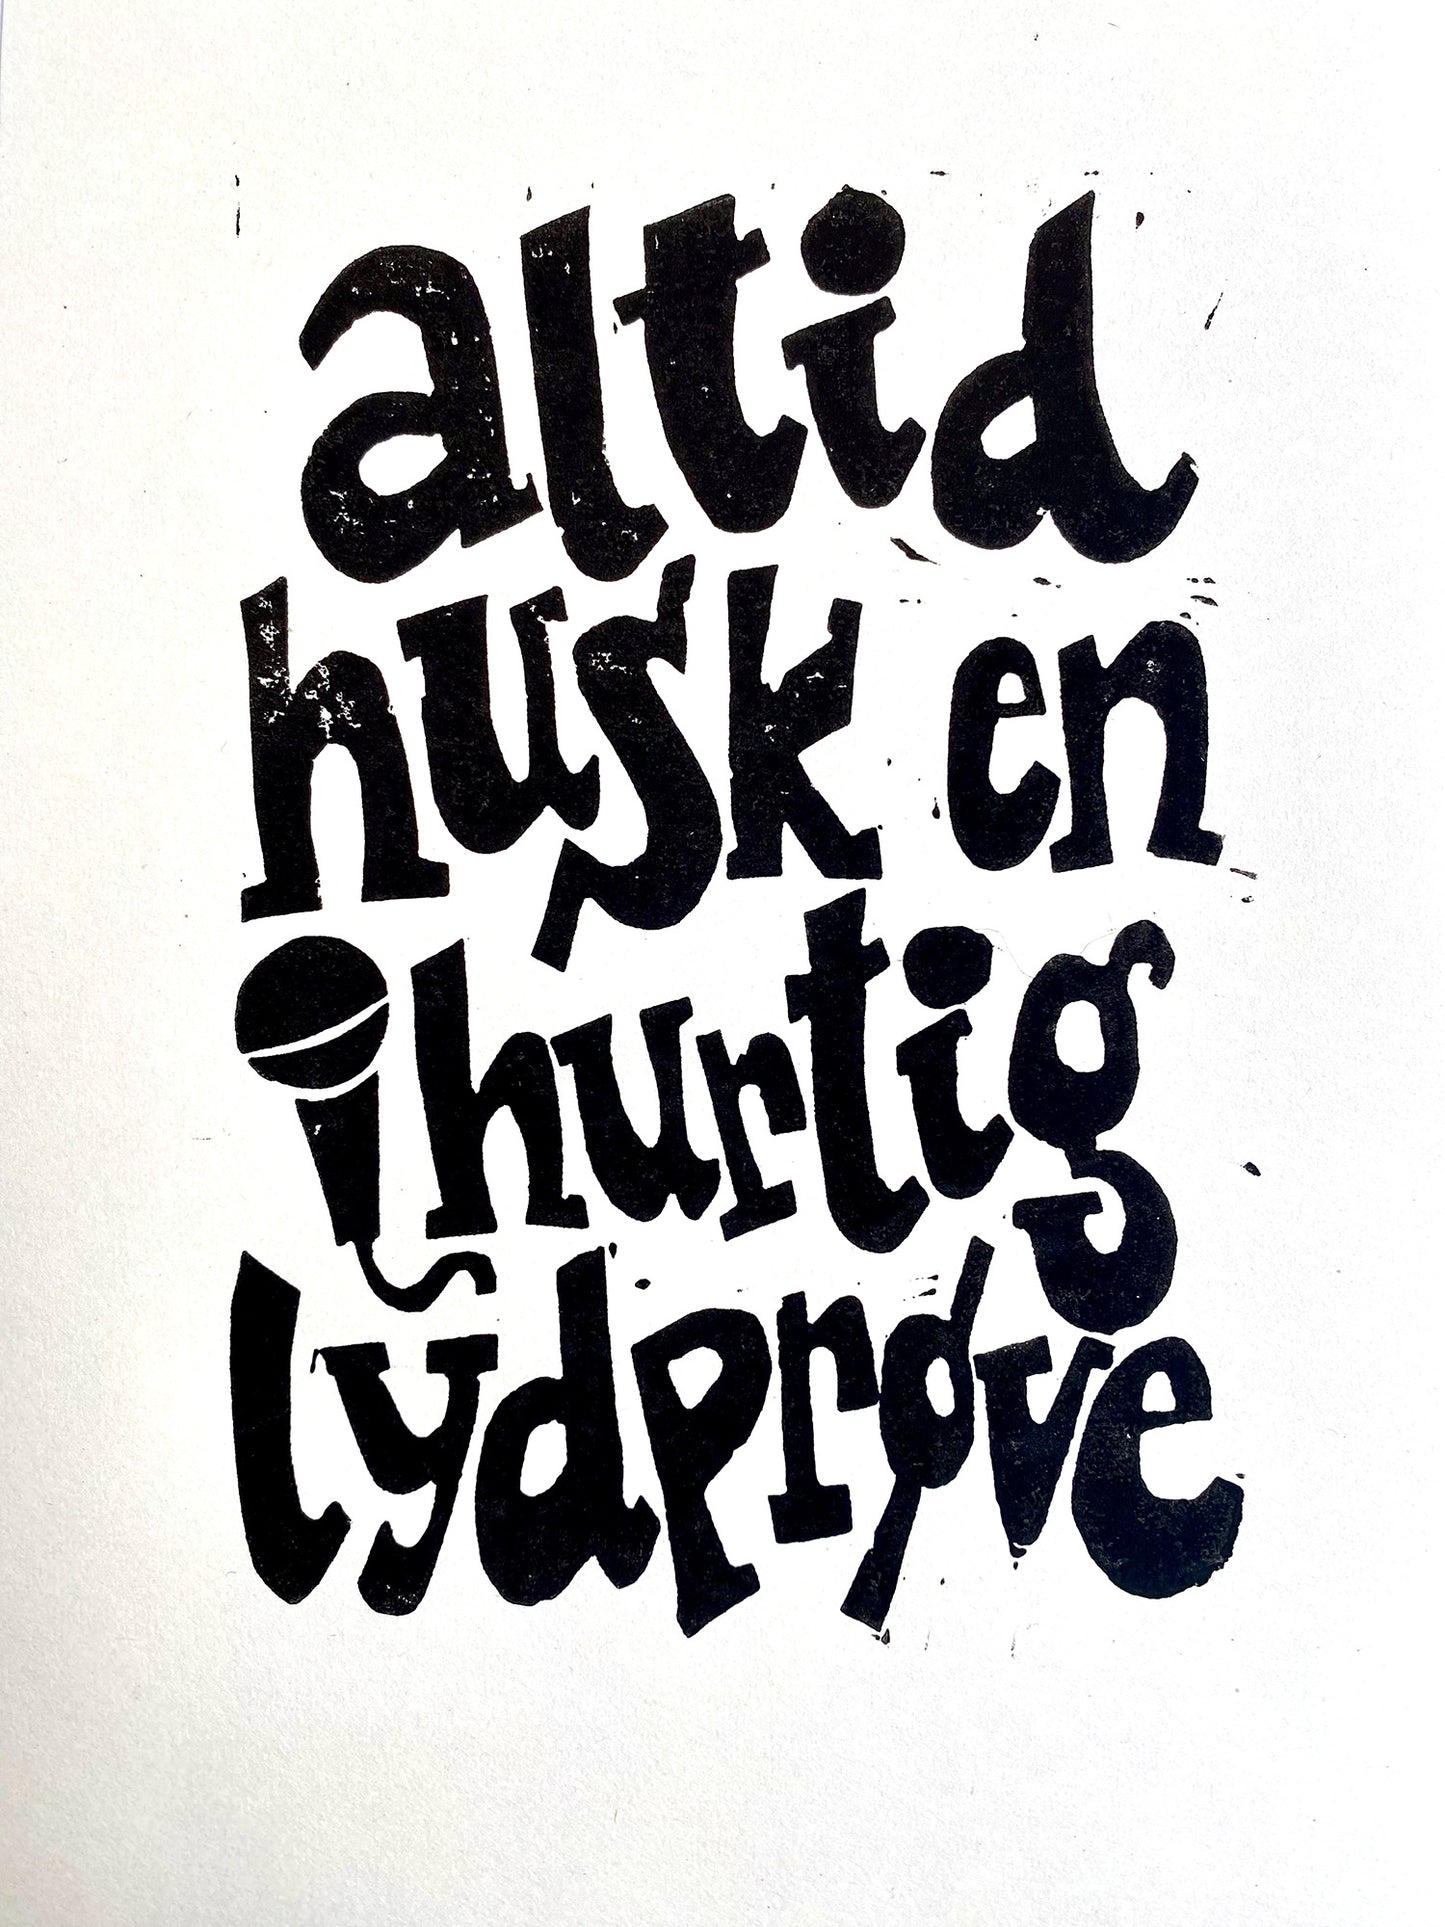 altid
husk en
hurtig
lydprøve